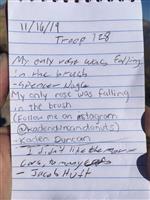 11/16/19
Troop 128
My only rose was falling
in the brush
- Spencer Nagle
My only rose was falling
in the brush
(Follow me on instagram
@kadendrewandnuts)
- Kaden Duncan
- I didn't like the
Cars, to many
- Jacob Hiott